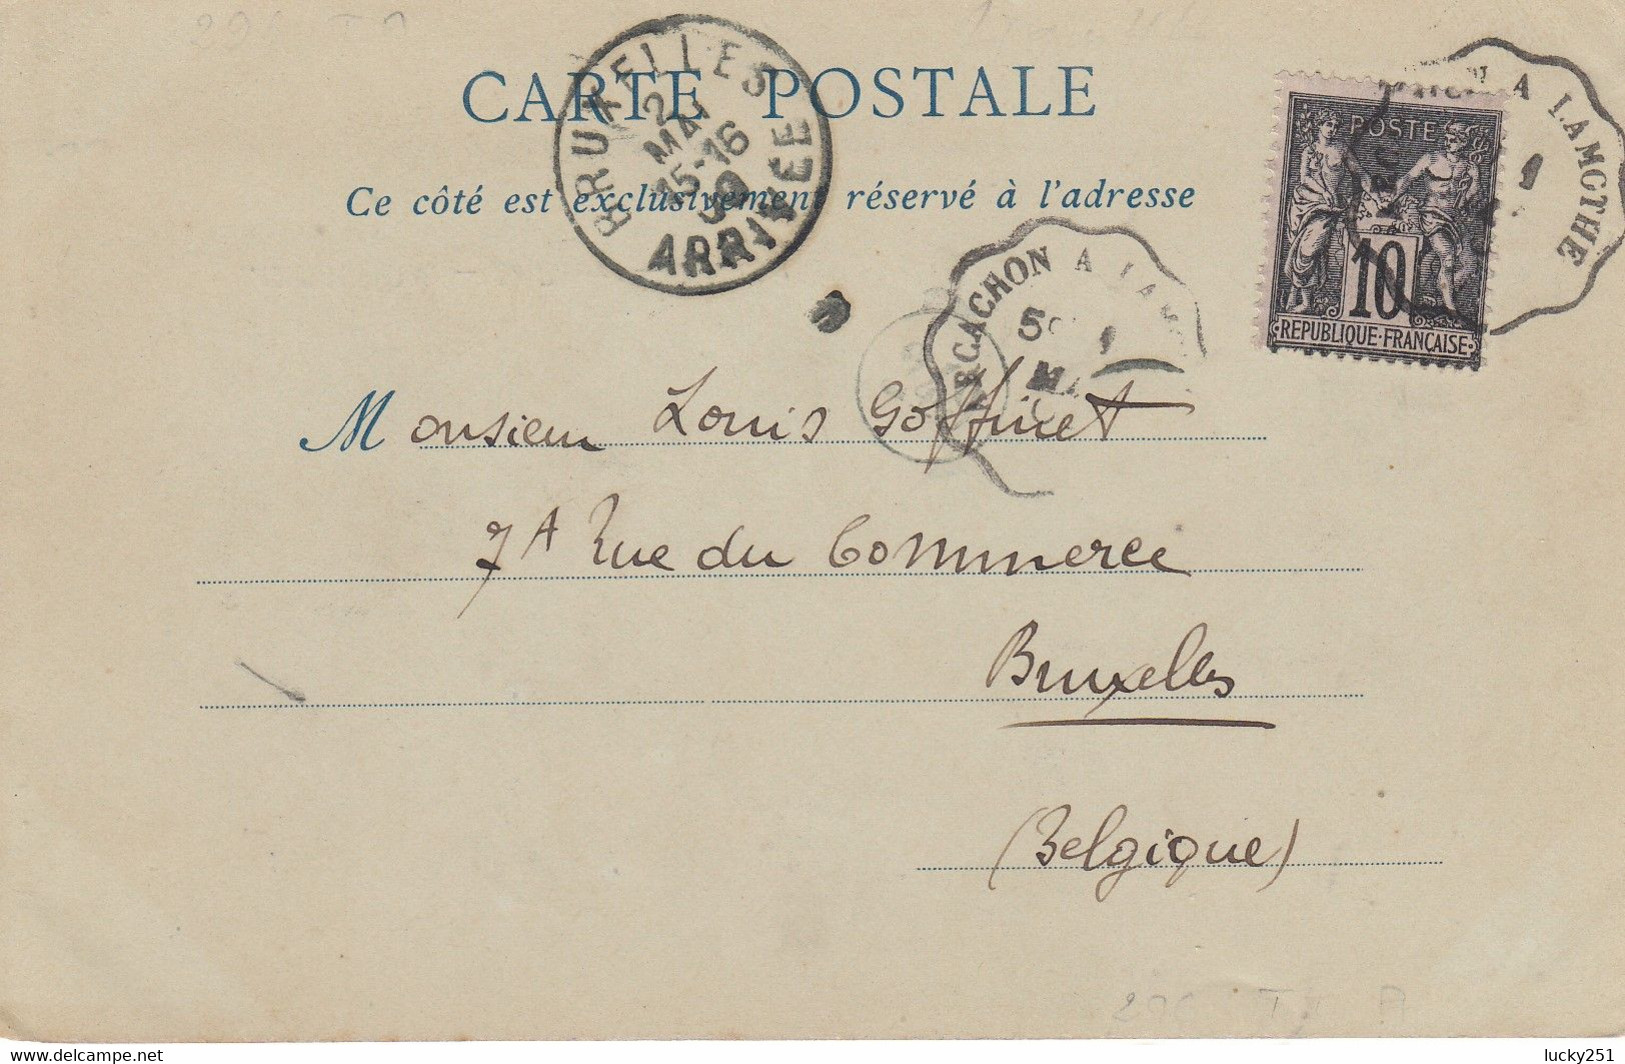 CARTE POSTALE
Ce côté est exclusivement réservé à l'adresse
BRUXELLES
2
MAI
15-16
99
ARRIVÉE
POSTE
10
·RÉPUBLIQUE·FRANÇAISE·
A LAMOTHE
1
ARCACHON A LAM
5
1
MA
Monsieur Louis Goffinet
7A Rue du Commerce
Bruxelles
(Belgique)
lucky251